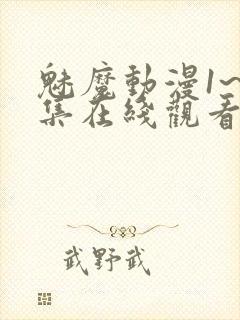 魅魔動漫1~
集在綫觀看
武野武